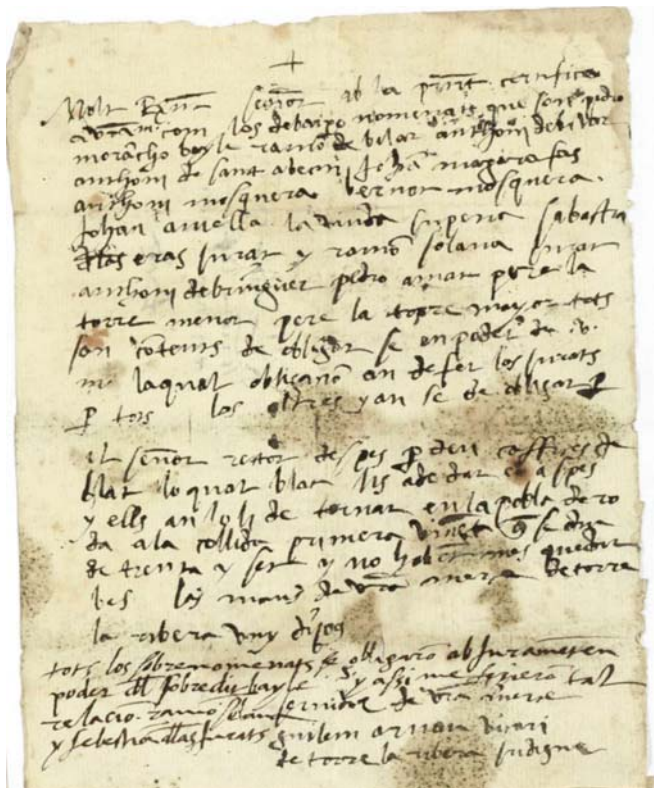 +
Molt señor ab la pnt certifica
com los debaixo nomenats que son pedro
moracho bayle ramo de bilar anthoni de bivar
anthoni de sant Joha magarafas
anthoni mosquera bernat mosquera
Johan la viuda superia sabastia
dllas eras Jurat y ramo solana Jurat
anthoni de bringuer pedro aznar pere la
torre menor pere la torre mayor tots
son cotents de obligar se en poder de v.
m. laqual obligacio an de fer los Jurats
p tots los altres y an se de obligar p
el señor retor despes p deu caffices de
blat lo qual blat lis a de dar a spes
y ells an lo li de tornar en la pobla de ro
da a la collida primera vinent q se diu
de trenta y set y no mes quedar
bes las mans de vra merse de torre
la ribera
tots los sobrenomenats se obligaro ab Jurament en
poder dll sobredit bayle y assi me fiziero tal
relacio ramo solana servidor de vra merse
y sebastia dllas Jurats guillem arnau vicari
de torre la ribera Indigne